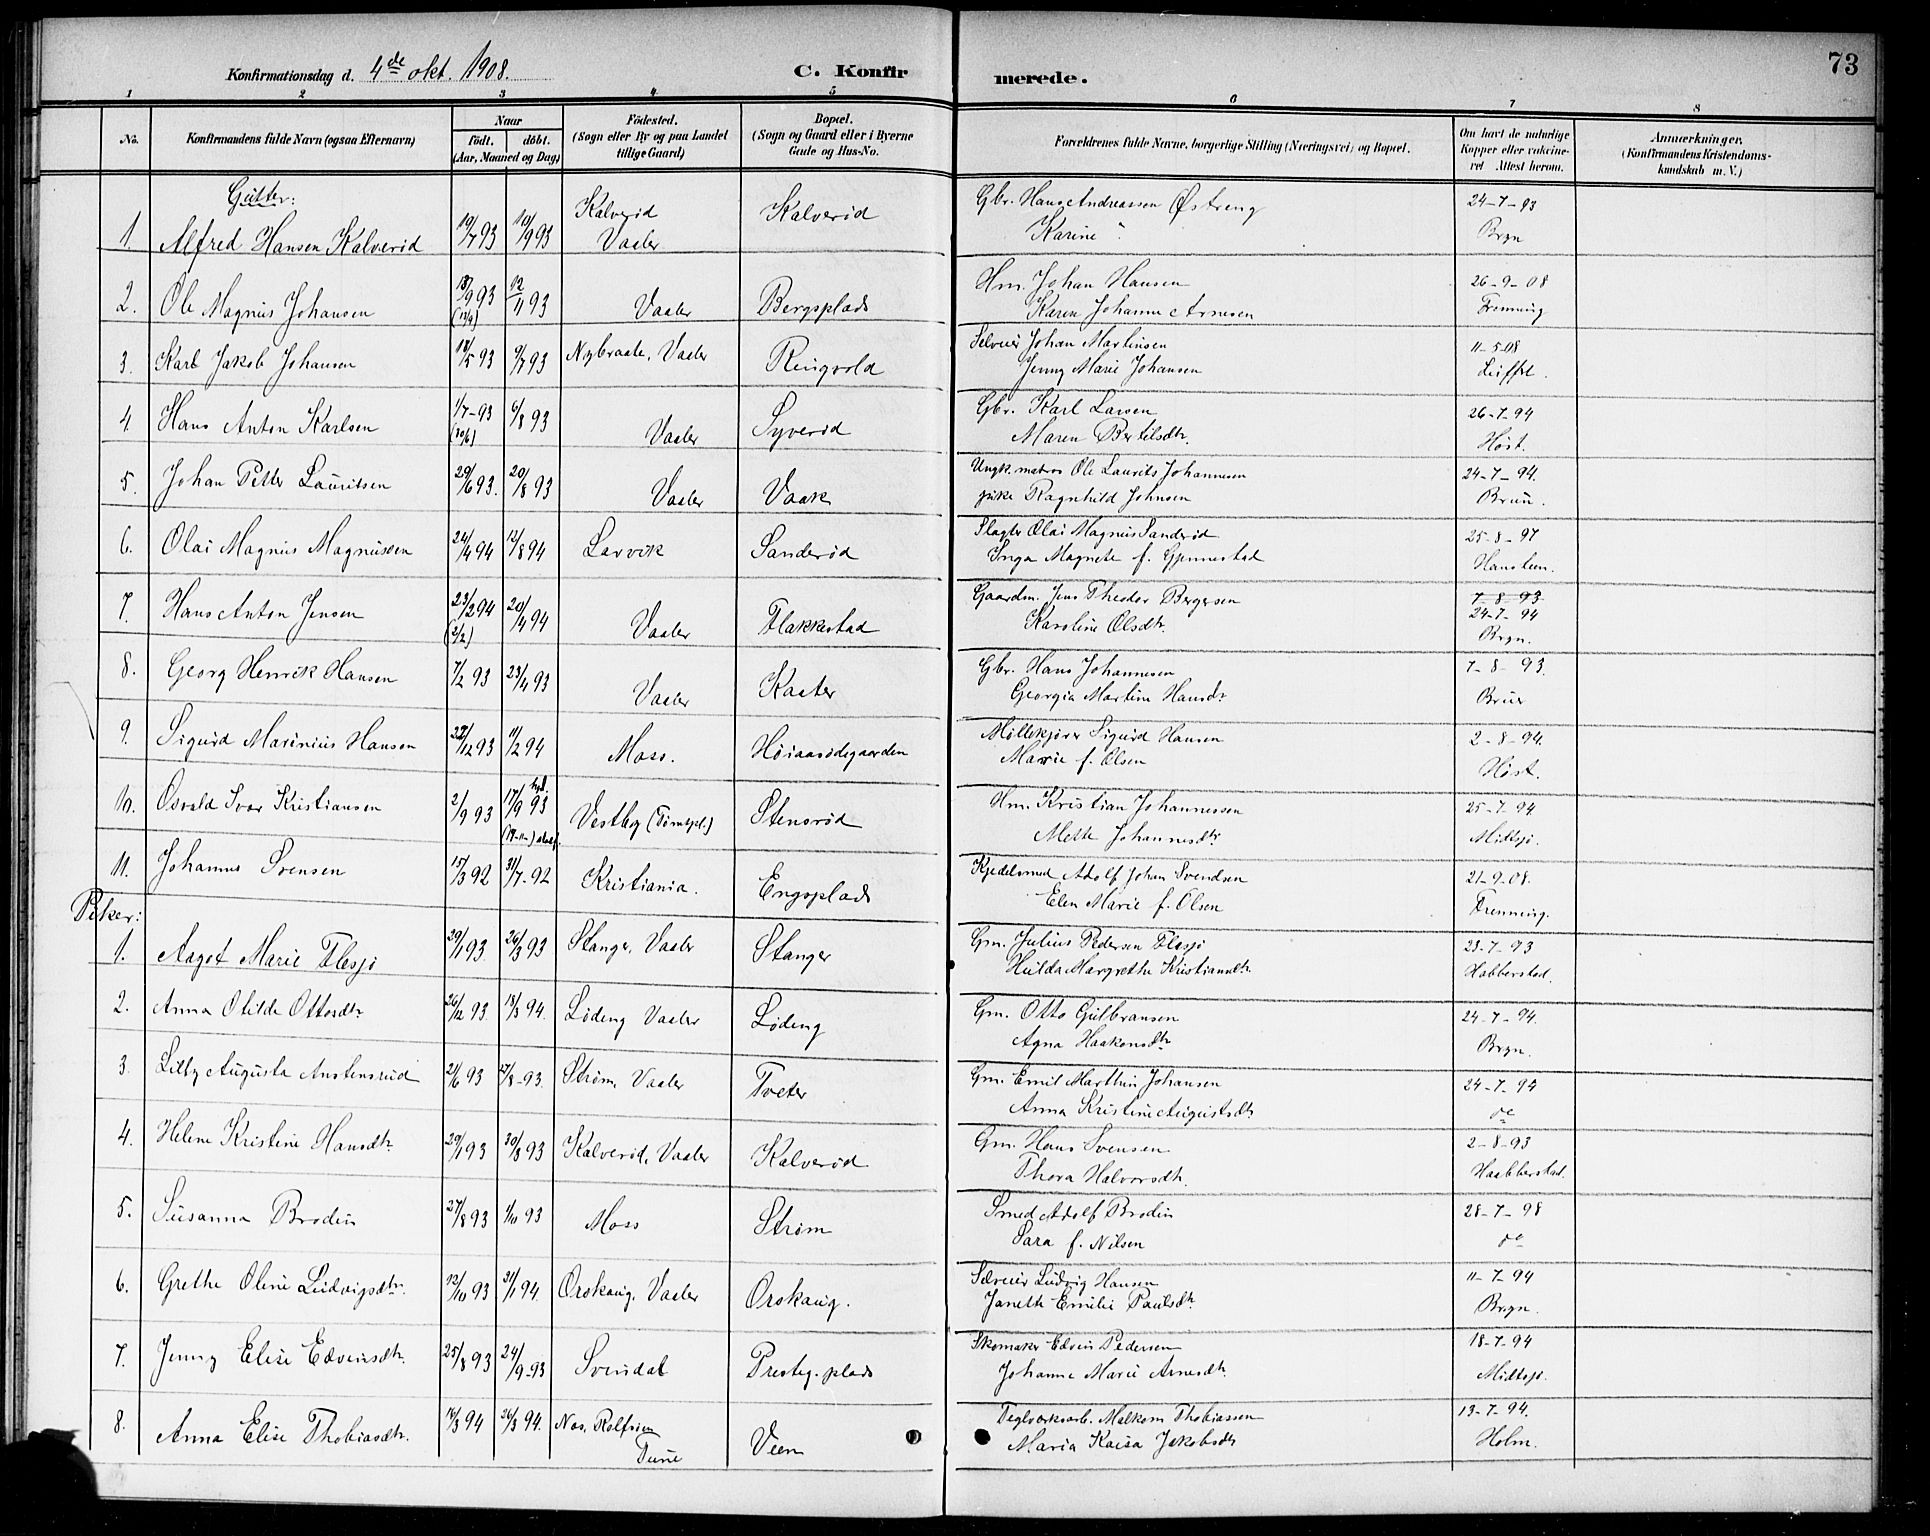 Konfirmationsdag d. 4de okt. 1908. C. Konfirmerede. 73
1 2 3 4 5 6 7 8
No. Konfirmandens fulde Navn (ogsaa Efternavn) Naar födt. döbt. (Aar, Maaned og Dag) Födested. (Sogn eller By og paa Landet tillige Gaard) Bopæl. (Sogn og Gaard eller i Byerne Gade og Hus-No. Forældrenes fulde Navne, borgerlige Stilling (Næringsvei) og Bopæl. Om havt de naturlige Kopper eller vaccineret. Attest herom. Anmærkninger. (Konfirmandens Kristendomskundskab m. V.)
Gutter:
1. Alfred Hansen Kalverød 19/7 93 10/9 93 Kalverød Vaaler Kalverød Gbr. Hans Andreassen Østreng 24-7-93
Karine " Bryn
2. Ole Magnus Johansen 18/9 93 (12/9) 12/11 93 Vaaler Bergsplads Hm. Johan Hansen 26-9-08
Karen Johanne Arnesen Frenning
3. Karl Jakob Johansen 18/5 93 9/7 93 Nybraate, Vaaler Ringvold Selveier Johan Martinsen 11-5-08
Jenny Marie Johansen
4 Hans Anton Karlsen 1/7-93 (30/6) 6/8 93 Vaaler Syverød Gbr. Karl Larsen 26-7-94
Maren Bertilsdtr. Høst.
5. Johan Petter Lauritsen 29/6 93. 20/8 93 Vaaler Vaak Ungk. matros Ole Laurits Johannesen 24-7-94.
pike Ragnhild Johnsen Brun.
6. Olai Magnus Magnussen 24/4 94 12/8 94 Larvik Sanderød Slagter Olai Magnus Sanderød 25-8-97
Inga Magnete f. Gjennestad Hansteen.
7. Hans Anton Jensen 23/2 94 (2/2) 20/4 94 Vaaler Flakkestad Gaardm. Jens Theodor Bergersen 7-8-93
Karoline Olsdtr. 24-7-94
Bryn.
8. Georg Henrik Hansen 7/2 93 23/4 93 Vaaler Kaater Gbr. Hans Johannesen 7-8-93.
Georgia Martine Hansdtr
9. Sigurd Marinius Hansen 22/12 93 11/2 94 Moss. Høiaasødegaarden Møllekjører Sigurd Hansen 2-8-94.
Marie f. Olsen Høst.
10. Osvald Ivar Kristiansen 2/9 93 17/9 93 hjd. Vestby Stenørød Hm. Kristian Johannessen 25-7-94
Mette Johannesdtr Midtsjø.
11. Johannes Svensen 15/3 92 31/7-92 Kristiania. Engsplads Kjedelsmed Adolf Johan Svendsen 21-9-08.
Elen Marie f. Olsen Frenning.
Piker:
1. Aagot Marie Flesjø 29/1 93. 26/3 93 Stanger, Vaaler Stanger Gm. Julius Pedersen Flesjø 23-7-93
Hulda Margrethe Kristiansdtr. Habberstad.
2. Anna Otilde Ottosdtr 26/12 93 18/3 94. Løding Vaaler Løding Gm. Otto Gulbransen 24-7-94.
Agna Haakonsdtr Bryn.
3. Lilly Augusta Austensrud 21/6 93 27/8-93. Strøm, Vaaler Tveter Gm. Emil Marthin Johansen 24-7-94
Anna Kristine Augustsdtr. do
4. Helene Kristine Hansdtr. 29/1 93 30/3 93 Kalverød, Vaaler Kalverød Gm. Hans Svensen 2-8-93
Thora Halvorsdtr. Haabberstad.
5. Susanna Brodin 27/8 93 1/10 93 Moss Strøm Smed Adolf Brodin 28-7-98
Sara f. Nilsen do
6. Grethe Oline Ludvigsdtr. 12/10 93 31/1 94. Orskaug, Vaaler Orskaug. Selveier Ludvig Hansen 11-7-94
Janette Emilie Paulsdtr. Bryn.
7. Jenny Elise Edvinsdtr. 25/8 93 24/9-93 Svindal Presteg. plads Skomaker Edvin Pedersen 18-7-94
Johanne Marie Arnesdtr. Midtsjø.
8. Anna Elise Thobiasdtr. 16/3 94 26/3 94. Nes, Rolfsøen Tune Veen Teglverksarb. Malkom Thobiassen 13-7-94.
Maria Kaisa Jakobsdtr Holm.